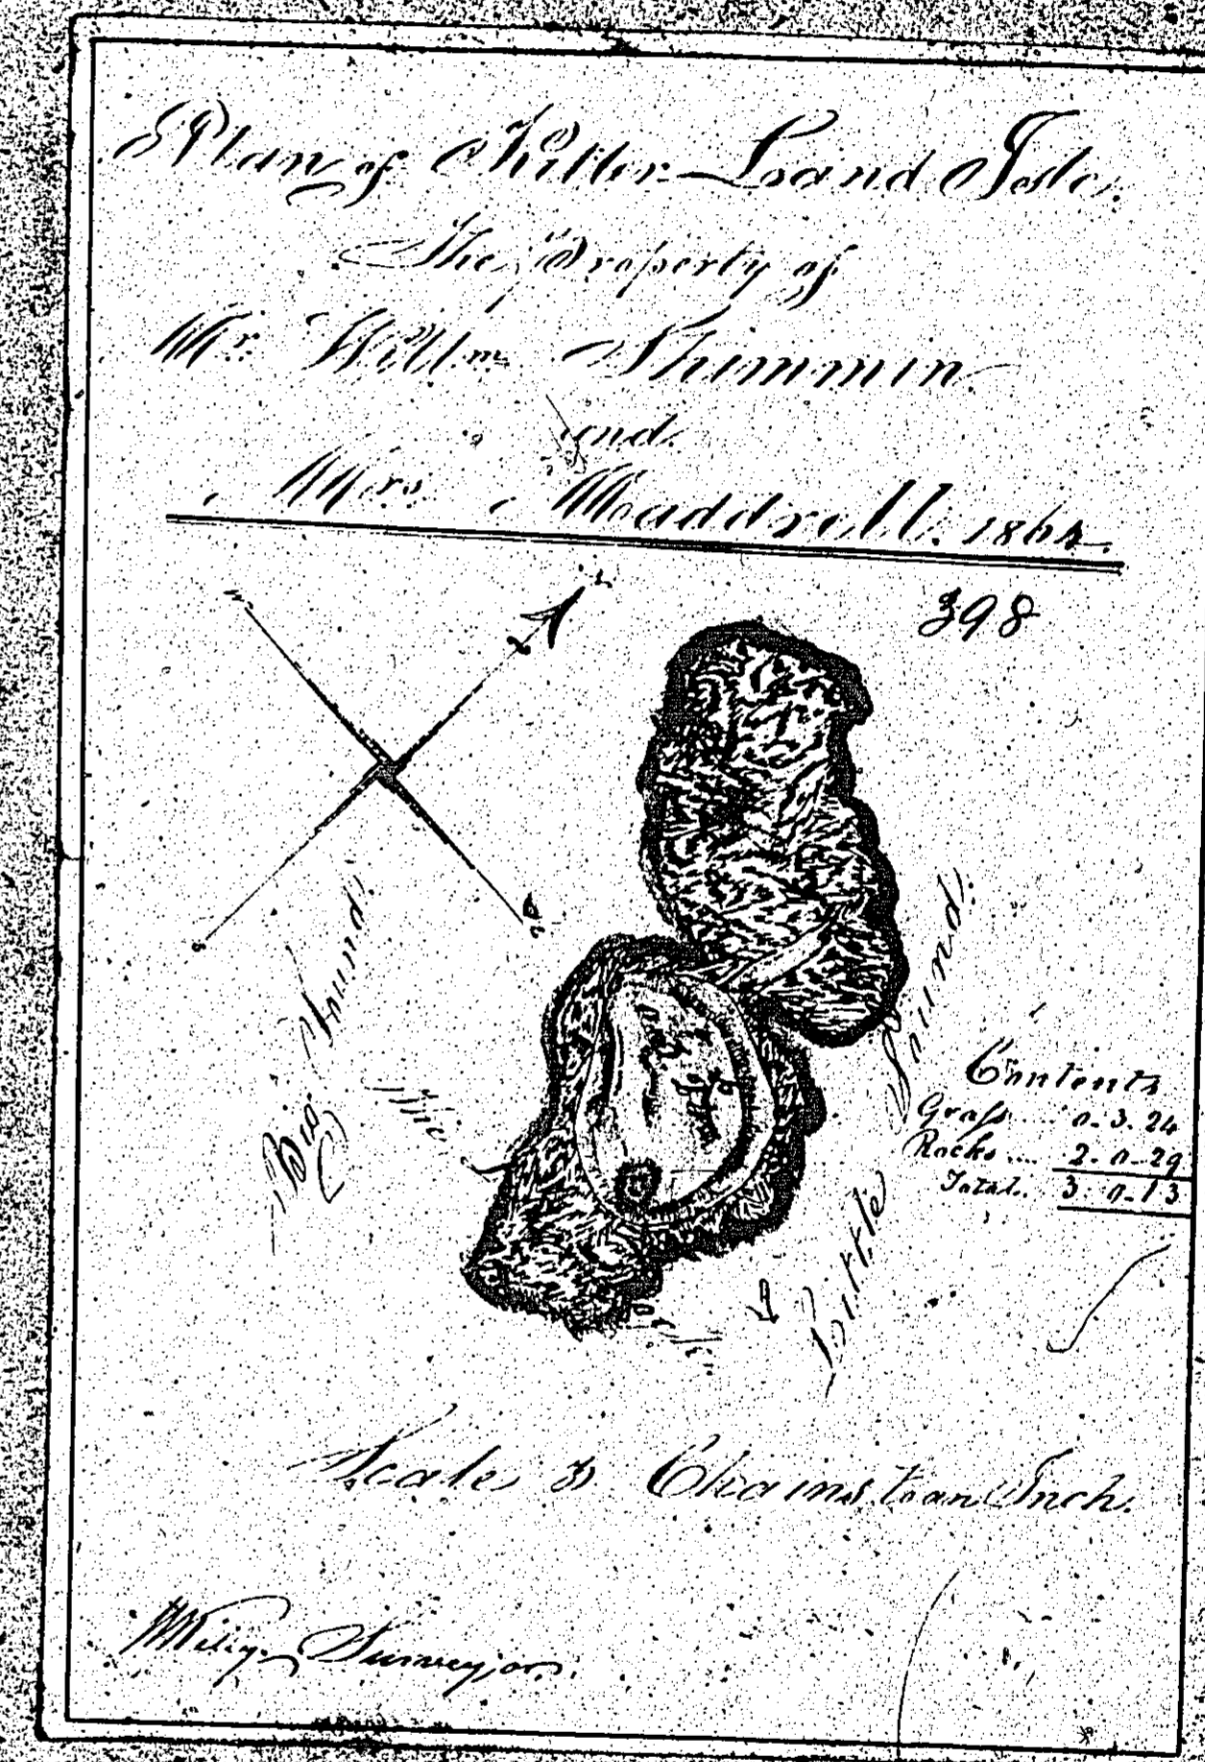 Plan of Kitter-Land Isle.
The Property of
Mr. Willm Shimmin
and
Mrs. Maddrell. 1864.
398
Big Sound.
The
Little Sound.
Contents
Grass .... 0.3.24
Rocks .... 2.0.29
Total. 3.0.13
Scale 3 Chains to an Inch.
Surveyor.